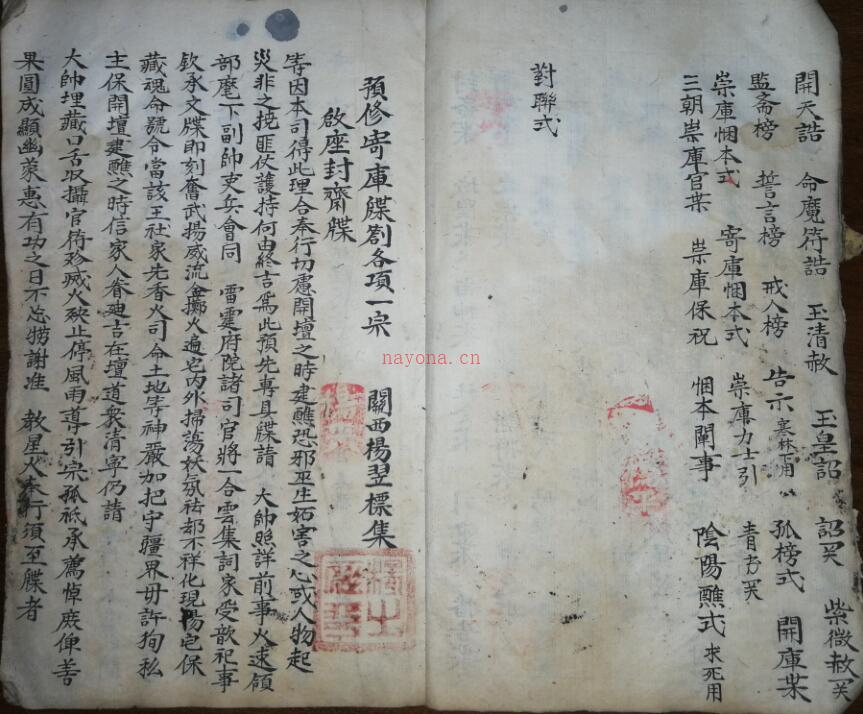 開天誥 命魔符誥 玉清赦 玉皇詔 詔関 紫微赦関
監斋榜 誓言榜 戒人榜 告示寒林用 孤榜式 開庫枼
崇庫悃本式 寄庫悃本式 崇庫力士引 青玄関
三朝崇庫官枼 崇庫保祝 悃本闡事 陰陽醮式求死用
對聯式
預修寄庫牒劄各項一宗 關西楊翌標集
啟座封齋牒
等因本司得此理合奉行切慮開壇之時建醮恐邪巫生妬害之心或人物起
災非之撓匪仗護持何由終吉爲此預先専具牒請 大帥照詳前事火速領
部麾下副帥吏兵會同 雷霆府院諸司官將一合雲集詞家受歆祀事
欽承文牒即刻奮武揚威流金擲火遍宅內外掃荡妖氛祛却不祥化現陽宅保
藏魂命號令當該王社家先香火司命土地等神嚴加把守疆界毋許狥私
主保開壇建醮之時信家人眷迪吉在壇道衆清寧仍請
大帥埋藏口舌收攝官符殄滅火殃止停風雨導引宗孤祇承薦悼庶俾善
果圓成顯幽蒙惠有功之日不忘犒謝准 教星火奉行須至牒者
nayona.cn